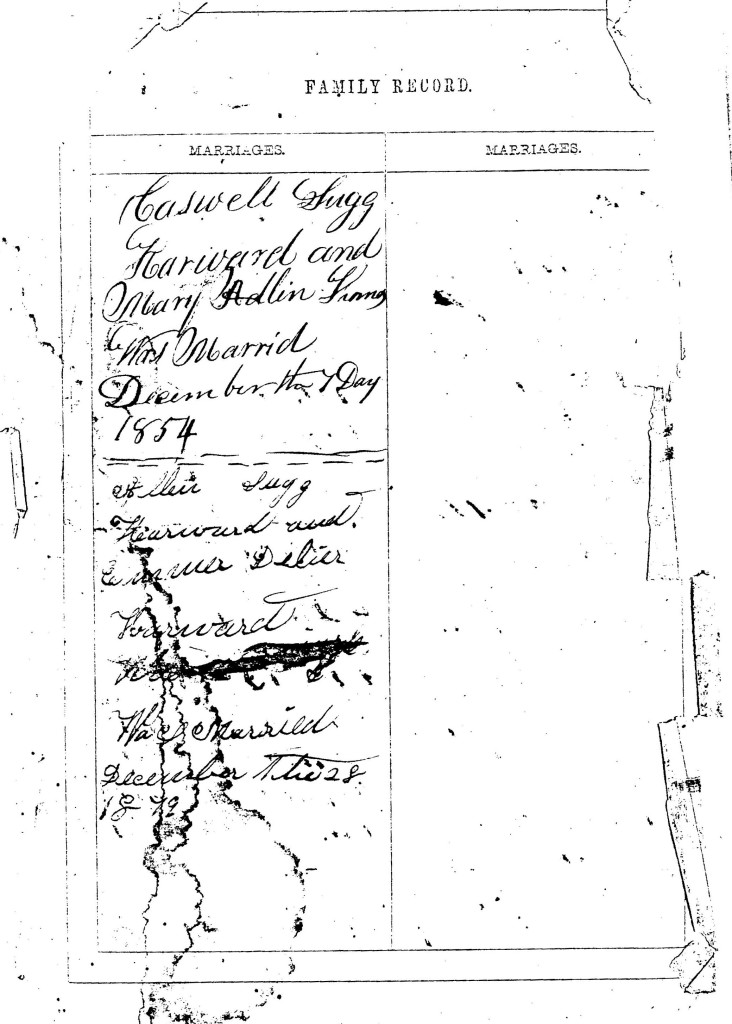 FAMILY RECORD.
MARRIAGES.
MARRIAGES.
Caswell Sugg
Harward and
Mary Adlin
Was Marrid
December the 7 Day
1854
Allen Sugg
Harward and
Emmer Delier
Harward
Was Married
December The 28
1879